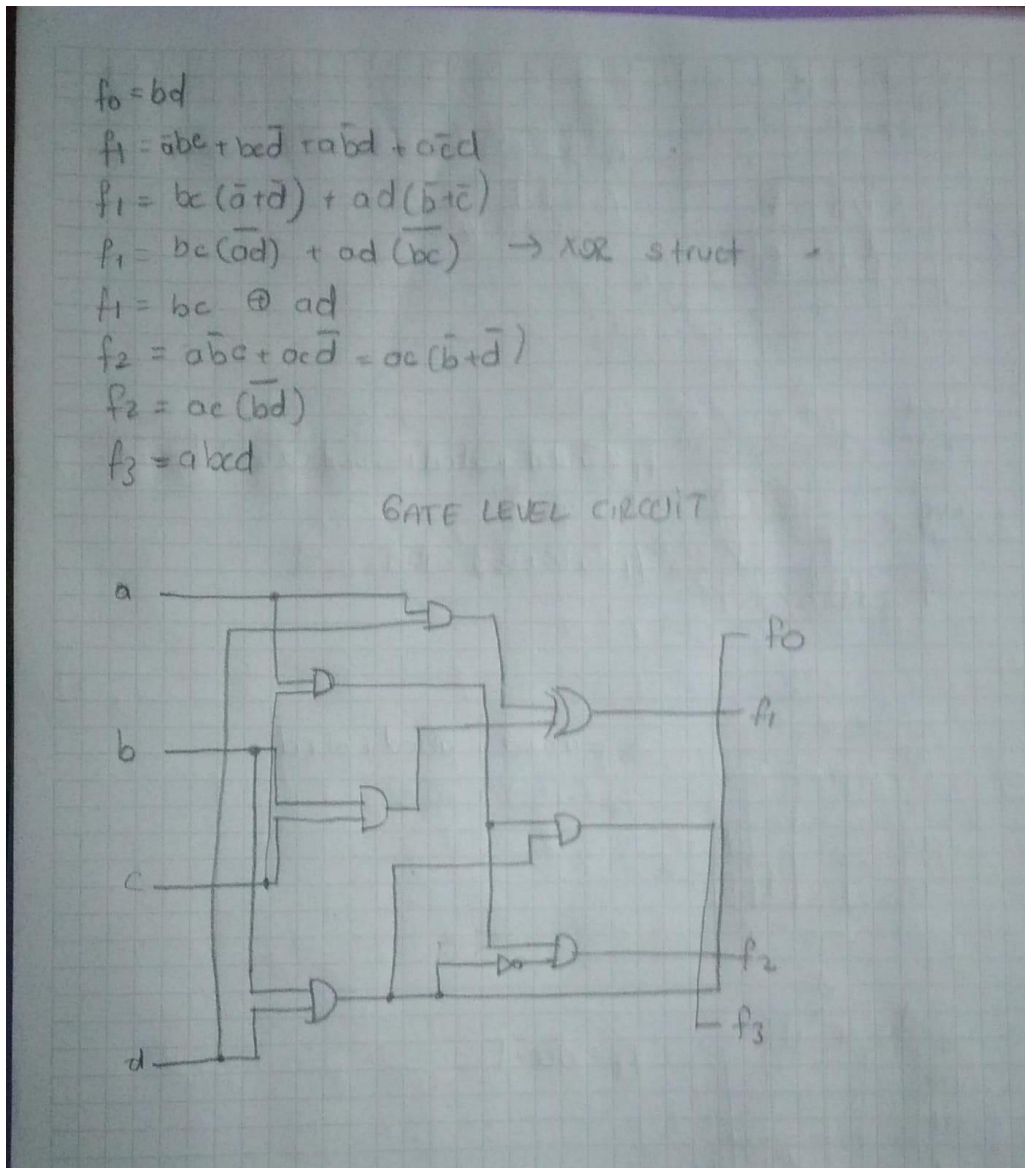 f0 = bd
f1 = a̅bc + bcd̅ + ab̅d + ac̅d
f1 = bc (a̅+d̅) + ad (b̅+c̅)
f1 = bc (a̅d̅) + ad (b̅c̅) → XOR struct
f1 = bc ⊕ ad
f2 = ab̅c + acd̅ = ac (b̅+d̅)
f2 = ac (b̅d̅)
f3 = abcd
GATE LEVEL CIRCUIT
a
f0
f1
b
c
f2
f3
d